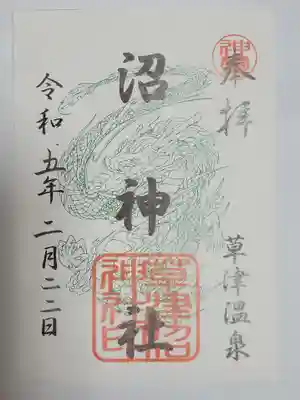 奉拝
草津温泉
沼神社
草津沼
神社印
令和五年二月二二日